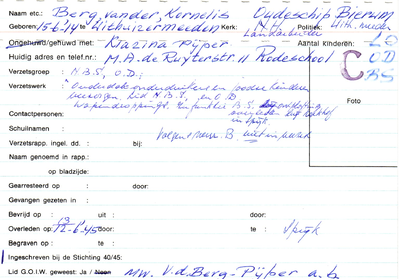 Naam etc.: Berg, van der, Kornelis Oudeschip Bierum
Geboren: 15-6-14 te Uithuizermeeden Kerk: N.H. Politiek: Uith.meeden
Landarbeider
Ongehuwd/gehuwd met: Klazina Pijper Aantal kinderen:
Huidig adres en telef.nr.: M.A. de Ruyterstr. 11 Roodeschool
Verzetsgroep : N.B.S., O.D.; C LO OD BS
Verzetswerk : Onderdak onderduikers en joodse kinderen
bezorgen. Lid N.B.S. en O.D.
Wapendroppings. In functie B.S.
Contactpersonen:
Spijk.
Foto
Schuilnaam :
Volgens mevr. B. niet
Verzetsrapp. ingel. dd. : bij:
Naam genoemd in rapp.:
op bladzijde:
Gearresteerd op : door:
Gevangen gezeten in :
Bevrijd op : uit : door:
Overleden op : 12-6-'45 door: te : Spijk
13
Begraven op : te :
Ingeschreven bij de Stichting 40/45:
Lid G.O.I.W. geweest: Ja / Neen Mw. V.d. Berg-Pijper a.b.